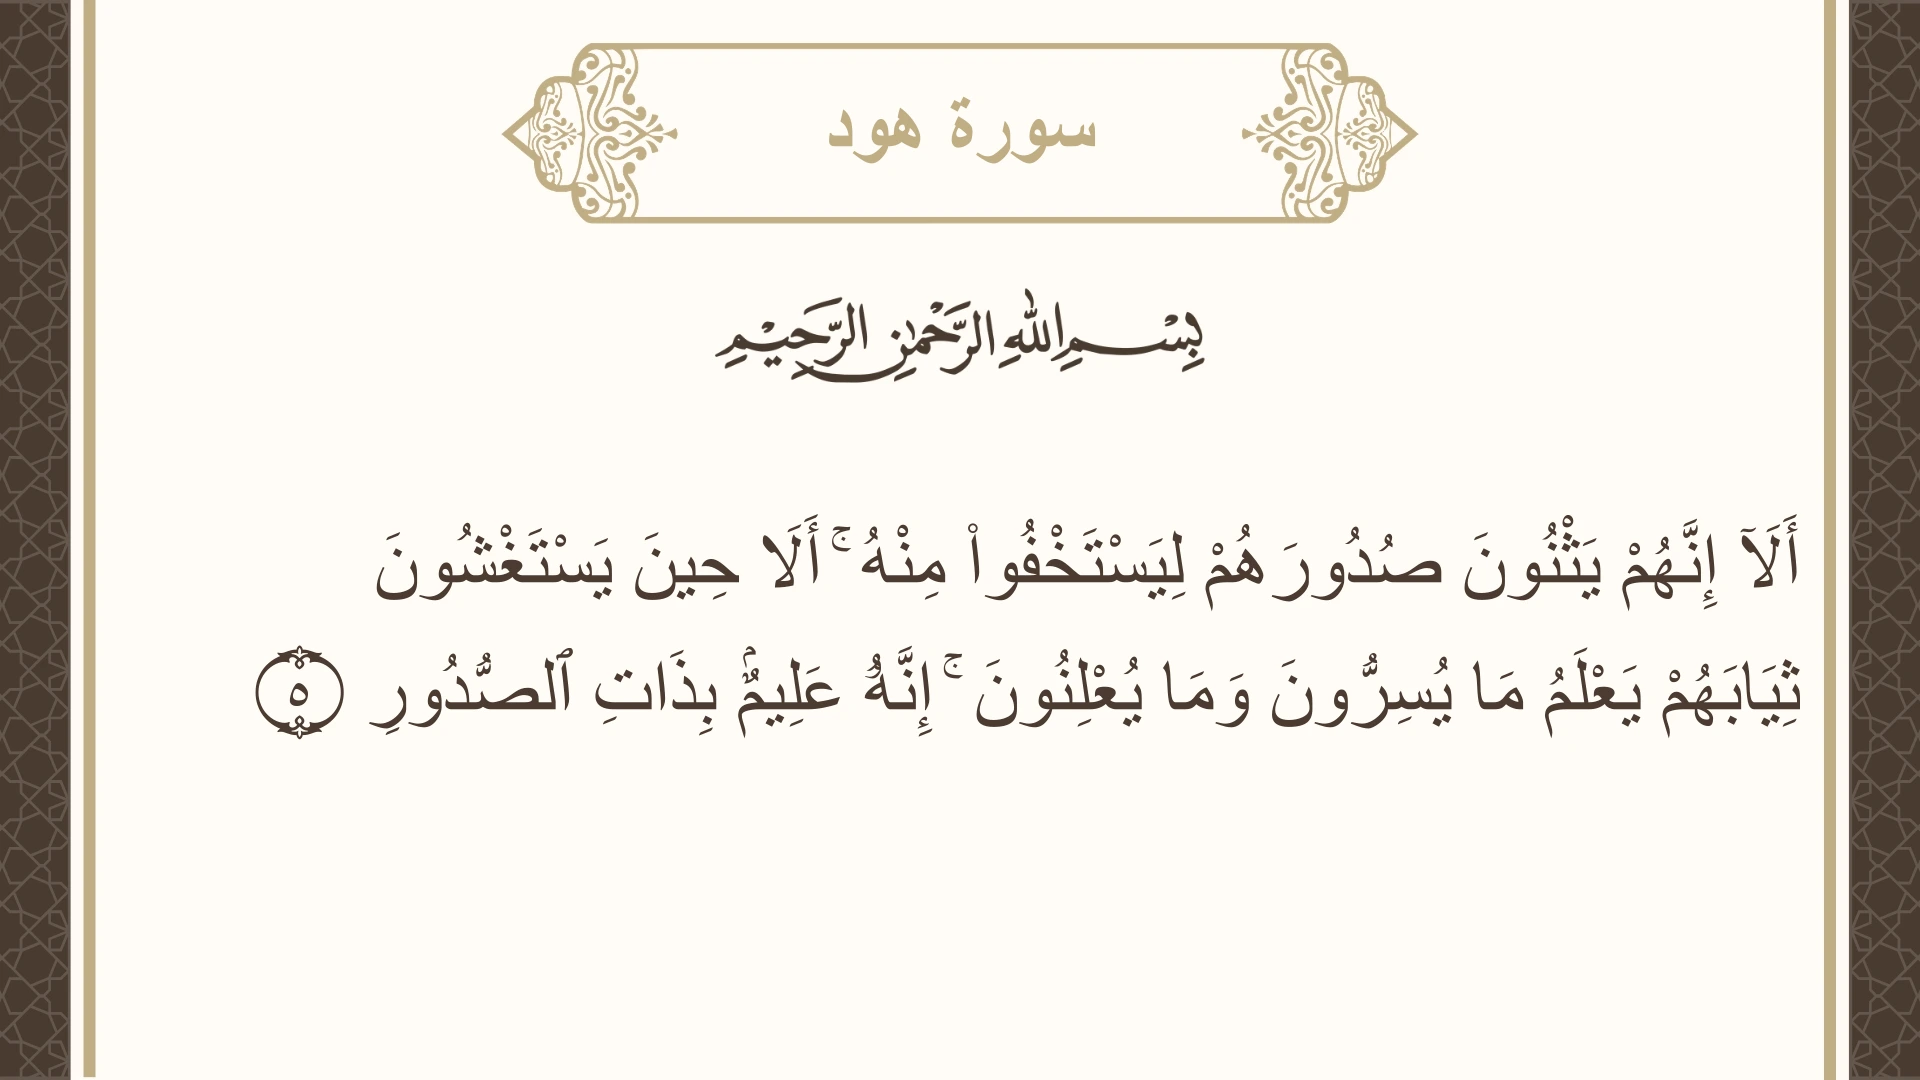 سورة هود
بِسْمِ اللهِ الرَّحْمٰنِ الرَّحِيْمِ
أَلَآ إِنَّهُمْ يَثْنُونَ صُدُورَهُمْ لِيَسْتَخْفُوا۟ مِنْهُ ۚ أَلَا حِينَ يَسْتَغْشُونَ
ثِيَابَهُمْ يَعْلَمُ مَا يُسِرُّونَ وَمَا يُعْلِنُونَ ۚ إِنَّهُۥ عَلِيمٌۢ بِذَاتِ ٱلصُّدُورِ ٥